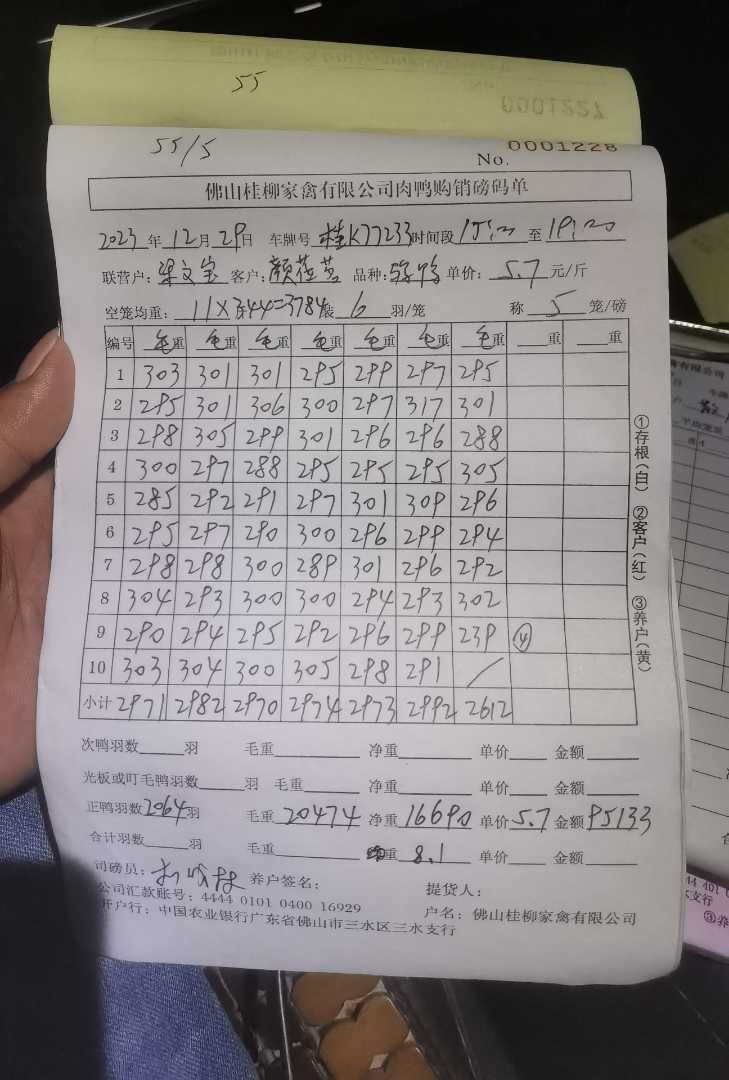 55
0001227
55/5
No. 0001228
佛山桂柳家禽有限公司肉鸭购销磅码单
2023 年 12 月 29 日 车牌号 桂K77233 时间段 至
联营户： 梁文宝 客户： 颜 品种： 单价： 5.7 元/斤
空笼均重： 11×344=3784 装 6 羽/笼 称 5 笼/磅
编号 毛重 毛重 毛重 毛重 毛重 毛重 毛重 重 重
1 303 301 301 295 299 297 295
2 295 301 306 300 297 317 301
3 298 305 299 301 296 296 288
4 300 297 288 295 295 295 305
5 285 292 291 297 301 309 296
6 295 297 290 300 296 299 294
7 298 298 300 289 301 296 292
8 304 293 300 300 294 293 302
9 290 294 295 292 296 299 239 ④
10 303 304 300 305 298 291 /
小计 2971 2982 2970 2974 2973 2992 2612
①存根（白） ②客户（红） ③养户（黄）
次鸭羽数 羽 毛重 净重 单价 金额
光板或叮毛鸭羽数 羽 毛重 净重 单价 金额
正鸭羽数 2064 羽 毛重 20474 净重 16690 单价 5.7 金额 95133
合计羽数 羽 毛重 重 8.1 单价 金额
司磅员： 养户签名： 提货人：
公司汇款账号：4444 0101 0400 16929 户名：佛山桂柳家禽有限公司
开户行：中国农业银行广东省佛山市三水区三水支行